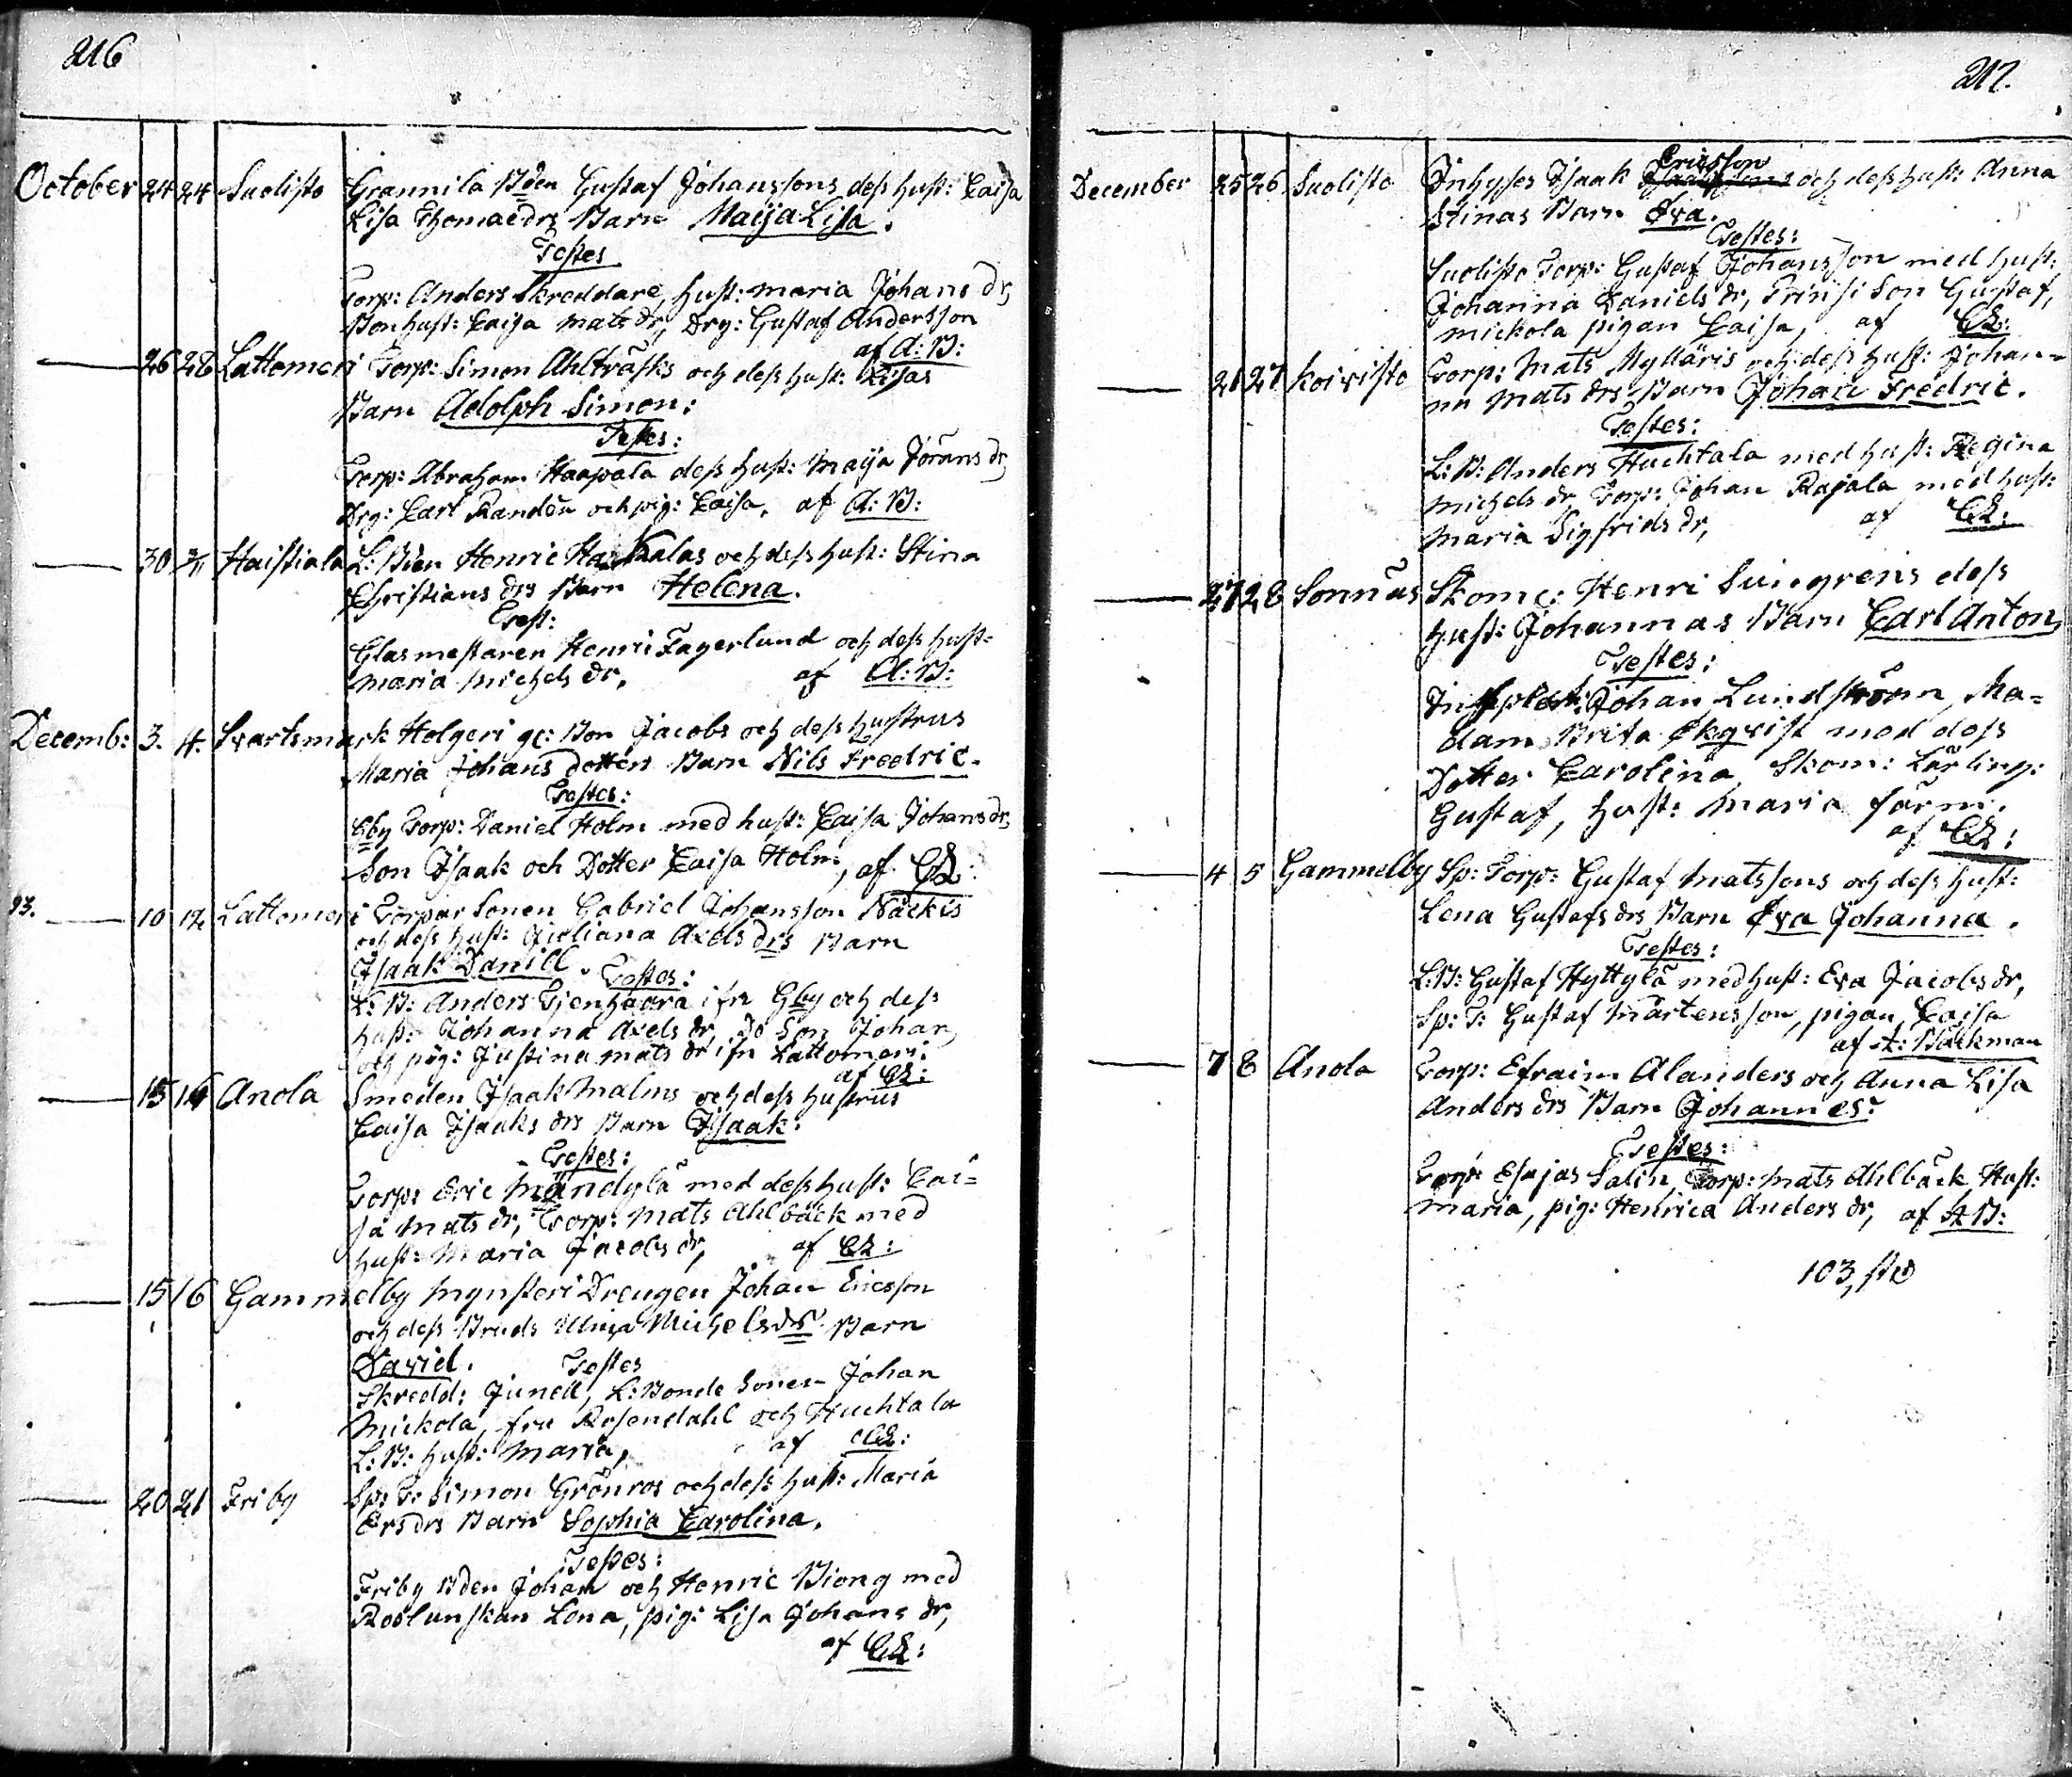 216
October 24 24 Suolisto Grannila Bden Gustaf Johanssons dess hust: Caisa
Lisa Thomaedrs Barn Maija Lisa.
Testes
Torp: Anders Skreddare, hust: maria Johans dr,
Bonhust: Caisa mats dr, Drg: Gustaf Andersson
af A: B:
26 28 Lattomeri Torp: Simon Ahlträsks och dess hust: Lisas
Barn Adolph Simon:
Testes:
Torp: Abraham Haapala dess hust: Maija Jörans dr,
Drg: Carl Randen och pig: Caisa, af A: B:
30 31 Haistiala L: Bden Henric Hannalas och dess hust: Stina
Christians drs Barn Helena.
Test:
Glasmestaren Henric Fagerlund och dess hust:
maria michels dr, af A: B:
Decemb: 3. 4. Svartsmark Holgeri gc: Bon Jacobs och dess hustrus
Maria Johans dotters Barn Nils Fredric.
Testes:
Gby Torp: Daniel Holm med hust: Caisa Johans dr,
Son Isaak och Dotter Caisa Holm, af CL:
93. 10 12 Lattomeri Torpar Sonen Gabriel Johansson Näckis
och dess hust: Juliana Axels drs Barn
Isaak Daniel. Testes:
L: B: Anders Tjenhaara ifn Gby och dess
hust: Johanna Axels dr, Do Son Johan,
och pig: Justina mats dr ifn Lattomeri:
af CL:
15 16 Anola Smeden Isaak Malms och dess hustrus
Caisa Isaaks drs Barn Isaak.
Testes:
Torp: Eric Mändylä med dess hust: Cai=
sa mats dr, Torp: Mats Ahlbäck med
hust: Maria Jacobs dr, af CL:
15 16 Gammelby mynsteri Drengen Johan Ericsson
och dess Bruds Ulrica Michels drs Barn
David. Testes
Skredd: Junell, L: Bonde Sonen Johan
Mickola, fru Rosendahl och Huchtala
L: B: hust: Maria, af CL:
20 21 Friby Sp: T: Simon Grönros och dess hust: Maria
Ersdrs Barn Sophia Carolina.
Testes:
Friby Bden Johan och Henric Biong med
Roslunskan Lena, pig: Lisa Johans dr,
af CL:
217.
December 25 26 Suolisto Inhyses Isaak Ericsson och dess hust: Anna
Stinas Barn Eva.
Testes:
Suolisto Torp: Gustaf Johansson med hust:
Johanna Daniels dr, Prinsi Son Gustaf,
mickola pigan Caisa, af CL:
26 27 Koivisto Torp: Mats Mylläris och dess hust: Johan=
na Mats drs Barn Johan Fredric.
Testes:
L: B: Anders Huchtala med hust: Regina
Michels dr Torp: Johan Rajala med hust:
Maria Sigfrids dr, af CL:
27 28 Sonnäs Skom: Henri Sungrens dess
hust: Johannas Barn Carl Anton,
Testes:
Johan Lundström, Ma=
dam Brita Ekqvist med dess
Dotter Carolina, Skom: Lärling:
Gustaf, hust: Maria
af CL:
4 5 Gammelby Sp: Torp: Gustaf Matssons och dess hust:
Lena Gustafs drs Barn Eva Johanna.
Testes:
L: B: Gustaf Hyttylä med hust: Eva Jacobs dr,
Sp: T: Gustaf Mårtensson, pigan Caisa
af A: Bäckman
7 8 Anola Torp: Efraim Alanders och Anna Lisa
Anders drs Barn Johannes:
Testes:
Torp: Esajas Salin, Torp: mats Ahlbäck Hust:
maria, pig: Henrica Anders dr, af A B:
103, st